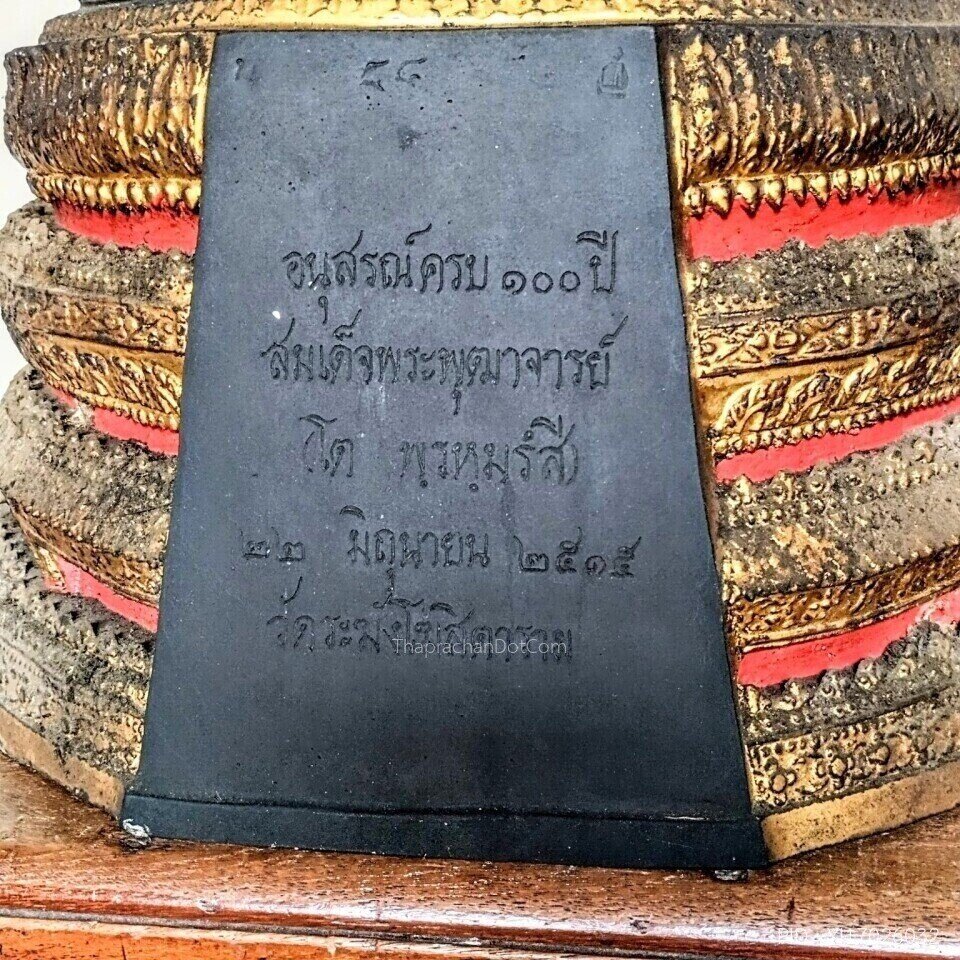 น ๕๘
อนุสรณ์ครบ ๑๐๐ ปี
สมเด็จพระพุฒาจารย์
(โต พฺรหฺมรํสี)
๒๒ มิถุนายน ๒๕๑๕
วัดระฆังโฆสิตาราม
ThaprachanDotCom